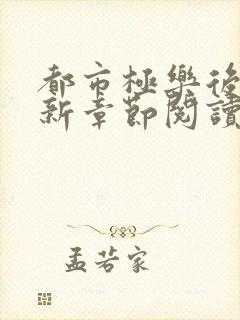 都市極樂後
新章節閱讀
孟若家